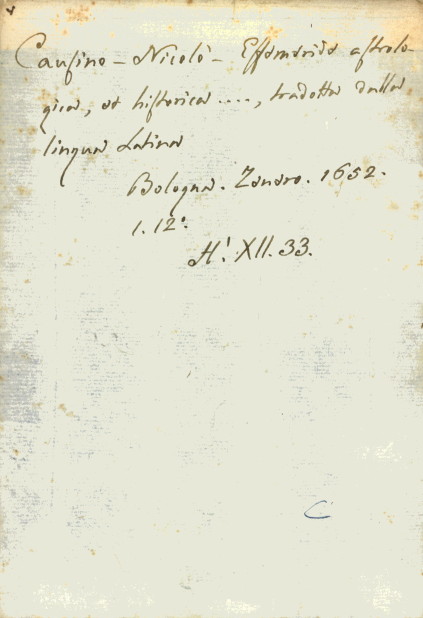 Causino - Nicolò - Effemeride astrolo-
gica, et historica ...., tradotta dalla
lingua Latina
Bologna. Zenero. 1652.
1. 12°.
H! XII. 33.
C